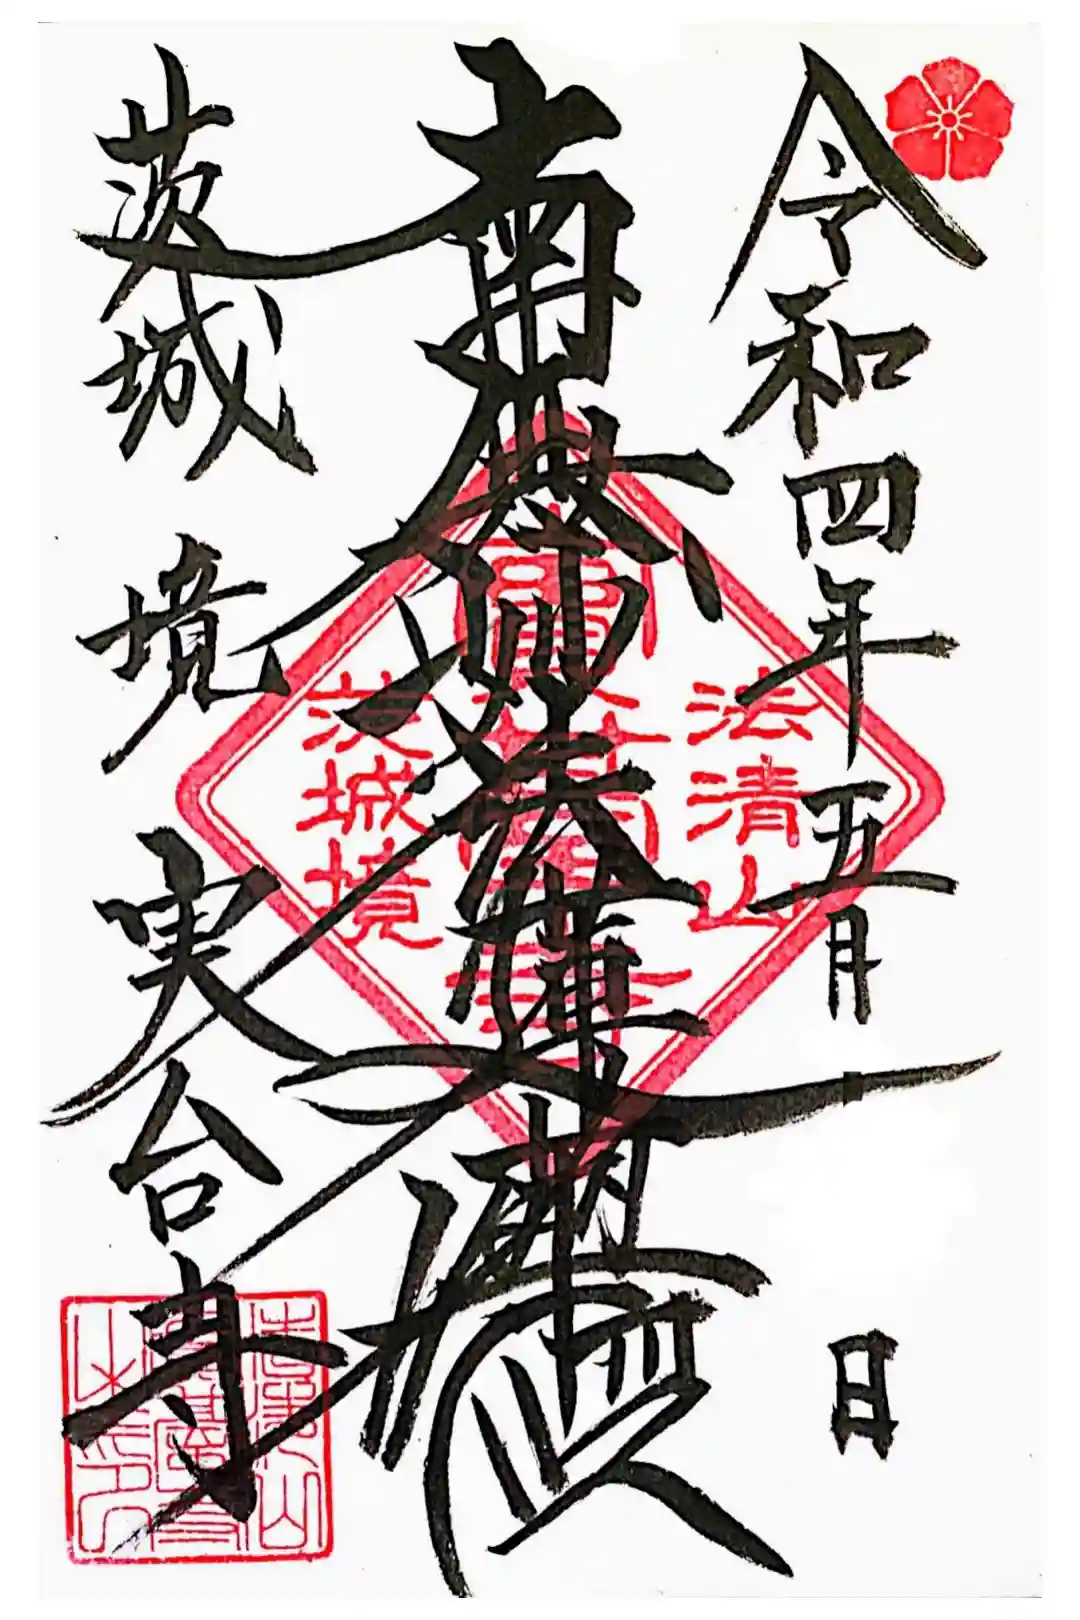 令和四年五月 日
南無妙法蓮華經
茨城 境 実台寺
法清山
茨城境